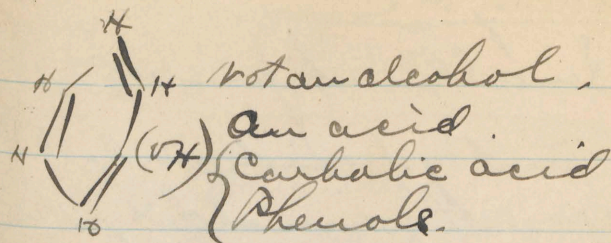 H
H H not an alcohol.
an acid.
H (OH) { Carbolic acid
H Phenols.